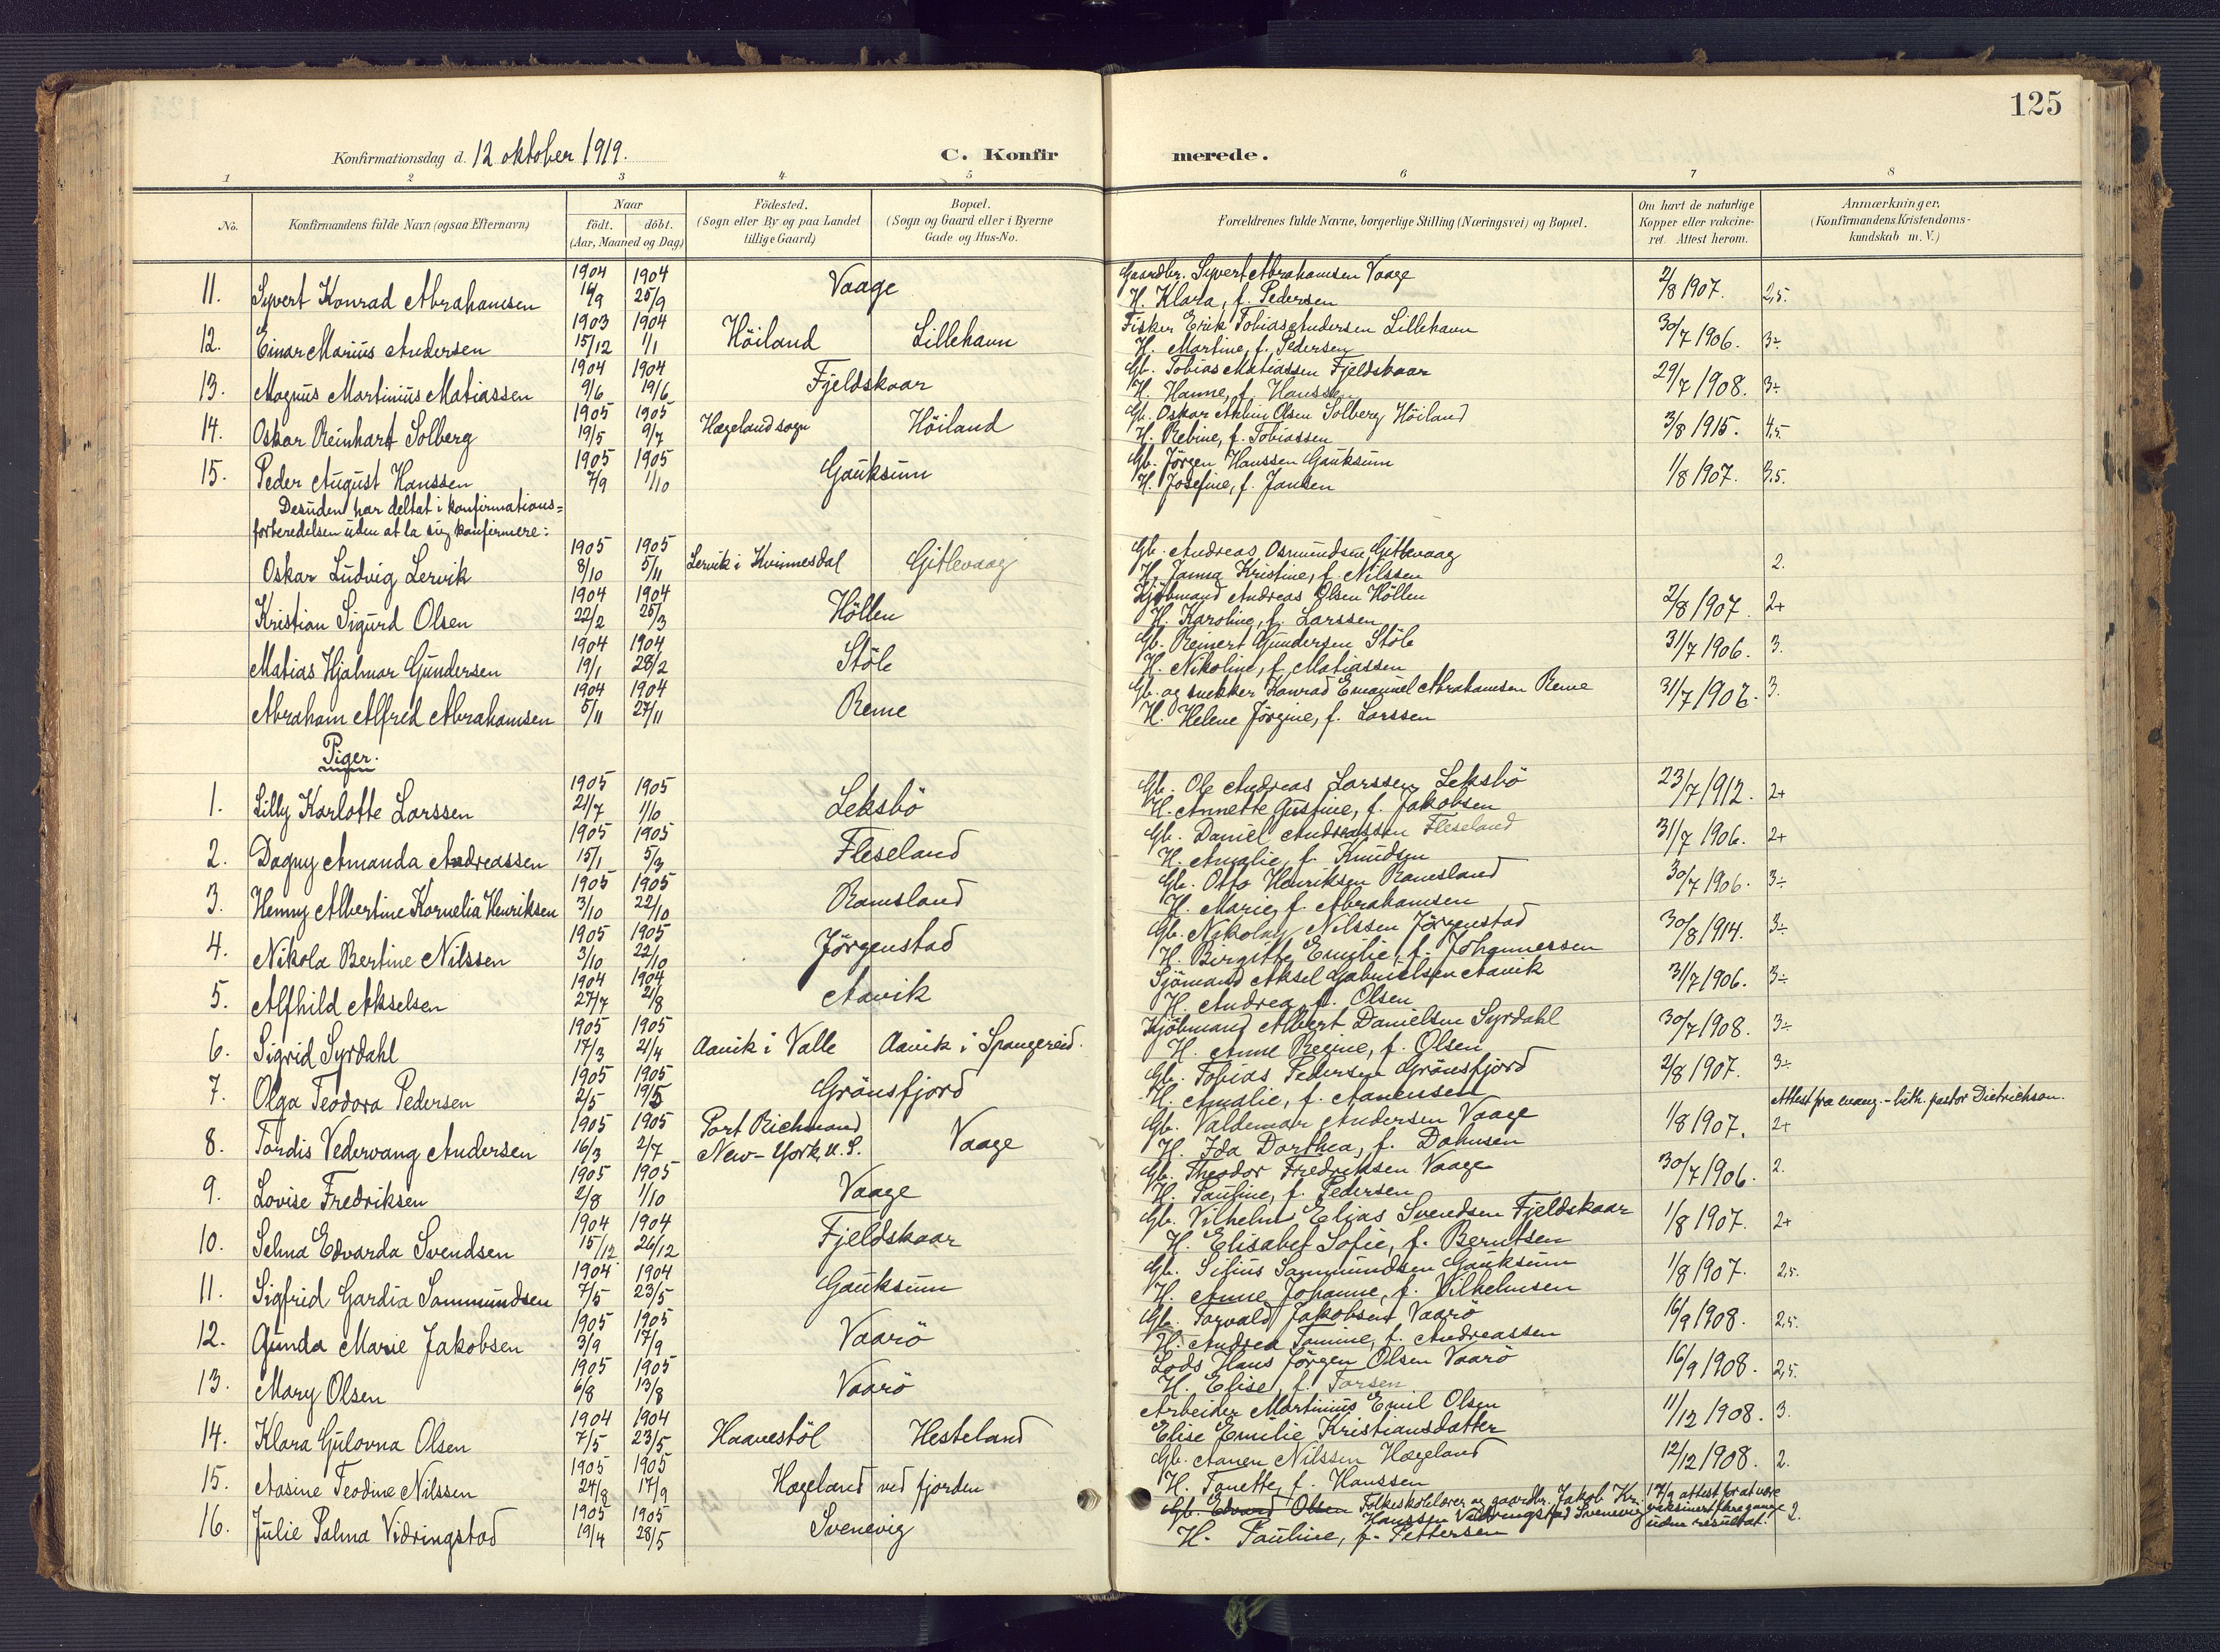 125
Konfirmationsdag d. 12 oktober 1919.
C. Konfirmerede.
1 2 3 4 5 6 7 8
No.
Konfirmandens fulde Navn (ogsaa Efternavn)
Naar
födt. döbt.
(Aar, Maaned og Dag)
Födested.
(Sogn eller By og paa Landet
tillige Gaard)
Bopæl.
(Sogn og Gaard eller i Byerne
Gade og Hus-No.
Forældrenes fulde Navne, borgerlige Stilling (Næringsvei) og Bopæl.
Om havt de naturlige
Kopper eller vakcine-
ret. Attest herom.
Anmærkninger.
(Konfirmandens Kristendoms-
kundskab m. V.)
11. Syvert Konrad Abrahamsen 1904 14/9 1904 25/9 Vaage Gaardbr. Syvert Abrahamsen Vaage
H. Klara, f. Pedersen 2/8 1907. 2,5.
12. Einar Marius Andersen 1903 15/12 1904 1/1 Höiland Lillehavn Fisker Erik Tobias Andersen Lillehavn
H. Martine, f. Pedersen 30/7 1906. 3÷
13. Magnus Martinius Matiassen 1904 9/6 1904 19/6 Fjeldskaar Gb. Tobias Matiassen Fjeldskaar
H. Hanne, f. Hanssen 29/7 1908. 3÷
14. Oskar Reinhart Solberg 1905 19/5 1905 9/7 Hægeland sogn Höiland Gb. Oskar Olsen Solberg Höiland
H. Rebine, f. Tobiassen 3/8 1915. 4,5.
15. Peder August Hanssen 1905 7/9 1905 1/10 Gauksum Gb. Jörgen Hanssen Gauksum
H. Josefine, f. Jansen 1/8 1907. 3,5.
Desuden har deltat i konfirmations=
forberedelsen uden at la sig konfirmere:
Oskar Ludvig Lervik 1905 8/10 1905 5/11 Lervik i Kvinnesdal Gitlevaag Gb. Andreas Osmundsen Gitlevaag
H. Janna Kristine, f. Nilssen 2.
Kristian Sigurd Olsen 1904 22/2 1904 25/3 Höllen Kjöbmand Andreas Olsen Höllen
H. Karoline, f. Larssen 2/8 1907. 2+
Matias Hjalmar Gundersen 1904 19/1 1904 28/2 Stöle Gb. Reinert Gundersen Stöle
H. Nikoline, f. Matiassen 31/7 1906. 3.
Abraham Alfred Abrahamsen 1904 5/11 1904 27/11 Reme Gb. og snekker Konrad Emanuel Abrahamsen Reme
H. Helene Jörgine, f. Larssen 31/7 1906. 3.
Piger.
1. Lilly Karlotte Larssen 1905 21/7 1905 1/10 Leksbö Gb. Ole Andreas Larssen Leksbö
H. Annette Gustine, f. Jakobsen 23/7 1912. 2+
2. Dagny Amanda Andreassen 1905 15/1 1905 5/3 Fleseland Gb. Daniel Andreassen Fleseland
H. Amalie, f. Knudsen 31/7 1906. 2+
3. Henny Albertine Kornelia Henriksen 1905 3/10 1905 22/10 Ramsland Gb. Otto Henriksen Ramsland
H. Marie, f. Abrahamsen 30/7 1906. 3÷
4. Nikola Bertine Nilssen 1905 3/10 1905 22/10 Jörgenstad Gb. Nikolay Nilssen Jörgenstad
H. Birgitte Emilie, f. Johannessen 30/8 1914. 3÷
5. Alfhild Akselsen 1904 27/7 1904 2/8 Aavik Sjömand Aksel Gabrielsen Aavik
H. Andrea, f. Olsen 31/7 1906. 3÷
6. Sigrid Syrdahl 1905 17/3 1905 2/4 Aavik i Valle Aavik i Spangereid. Kjöbmand Albert Danielsen Syrdahl
H. Anne Regine, f. Olsen 30/7 1908. 3÷
7. Olga Teodora Pedersen 1905 2/5 1905 19/5 Grönsfjord Gb. Tobias Pedersen Grönsfjord
H. Amalie, f. Aanensen 2/8 1907. 3÷
8. Tordis Vedervang Andersen 1905 16/3 1905 2/7 Port Richmond
New-York, U.S. Vaage Gb. Valdemar Andersen Vaage
H. Ida Dorthea, f. Dahnsen 1/8 1907. Attest fra evang.-luth. pastor Dietrichson.
2+
9. Lovise Fredriksen 1905 2/8 1905 1/10 Vaage Gb. Theodor Fredriksen Vaage
H. Pauline, f. Pedersen 30/7 1906. 2.
10. Selma Edvarda Svendsen 1904 15/12 1904 26/12 Fjeldskaar Gb. Vilhelm Elias Svendsen Fjeldskaar
H. Elisabet Sofie, f. Berntsen 1/8 1907. 2+
11. Sigfrid Gardia Sammundsen 1904 7/5 1904 23/5 Gauksum Gb. Sifius Sammundsen Gauksum
H. Anne Johanne, f. Vilhelmsen 1/8 1907. 2,5.
12. Gunda Marie Jakobsen 1905 3/9 1905 17/9 Vaarö Gb. Torvald Jakobsen Vaarö
H. Andrea Tomine, f. Andreassen 16/9 1908. 2,5.
13. Mary Olsen 1905 6/8 1905 13/8 Vaarö Lods Hans Jörgen Olsen Vaarö
H. Elise, f. Torsen 16/9 1908. 2,5.
14. Klara Gulovna Olsen 1904 7/5 1904 23/5 Haavestöl Hesteland Arbeider Martinius Emil Olsen
Elise Emilie Kristiansdatter 11/12 1908. 3.
15. Aasine Teodine Nilssen 1905 24/8 1905 17/9 Hægeland ved fjorden Gb. Aanen Nilssen Hægeland
H. Tonette, f. Hanssen 12/12 1908. 2.
16. Julie Palma Vidringstad 1905 19/4 1905 28/5 Svenevig Gb. Edvard Olsen Folkeskolelærer og gaardbr. Jakob Kr.
Hanssen Vidringstad Svenevig
H. Pauline, f. Pettersen 17/9 attest for at være
vaksinert flere gange
uden resultat. 2.